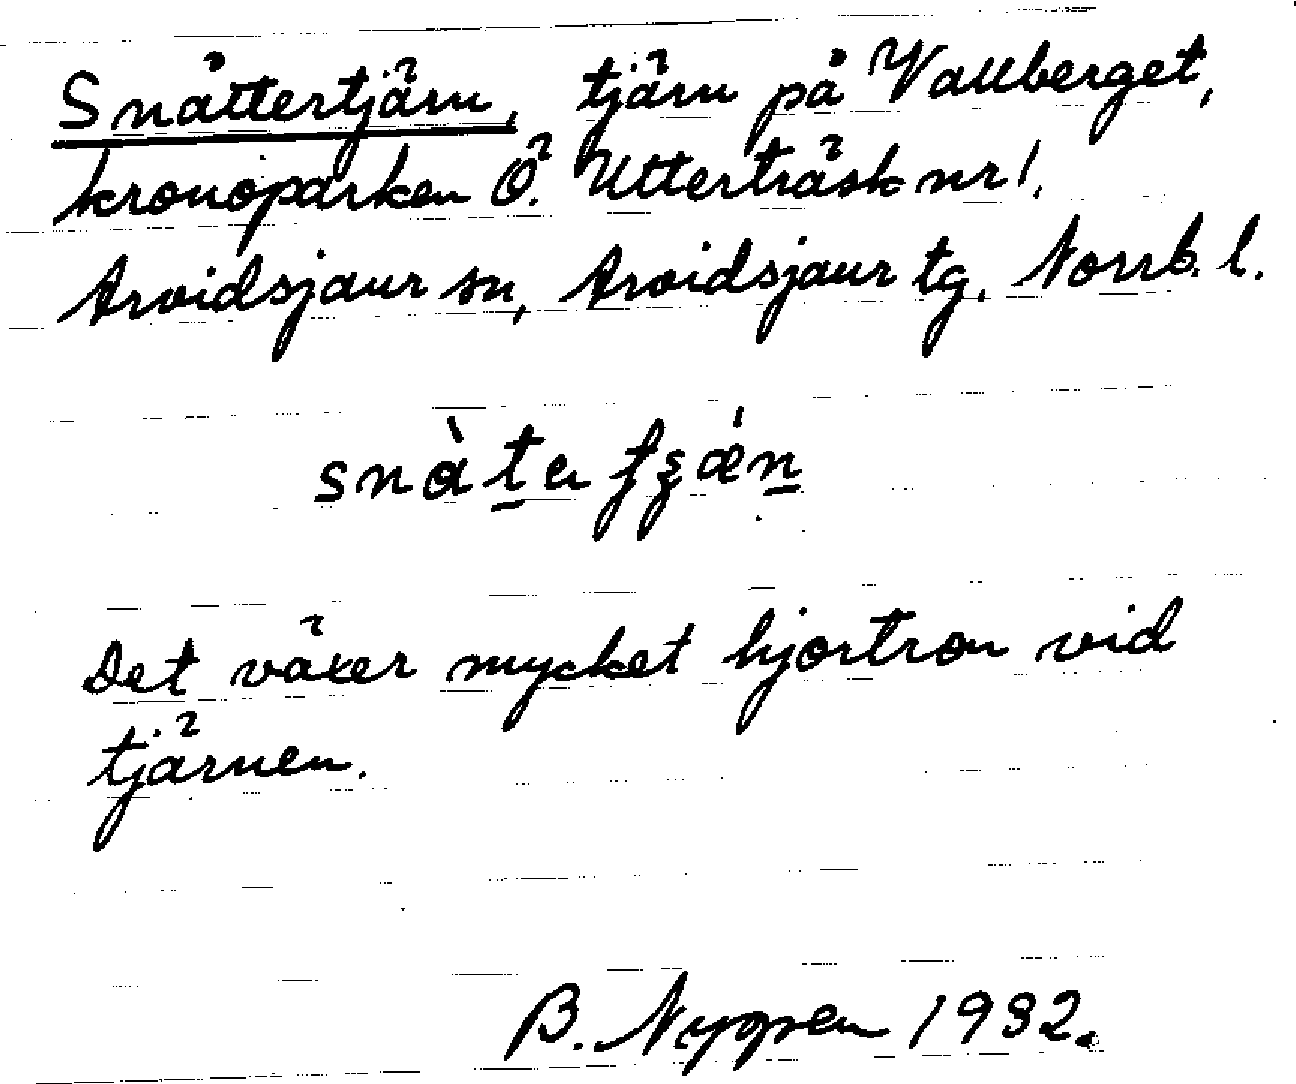 Snåttertjärn, tjärn på Vallberget,
kronoparken Ö. Utterträsk nr 1.
Arvidsjaur sn, Arvidsjaur tg. Norrb. l.
Det växer mycket hjortron vid
tjärnen.
B. Nygren 1932.